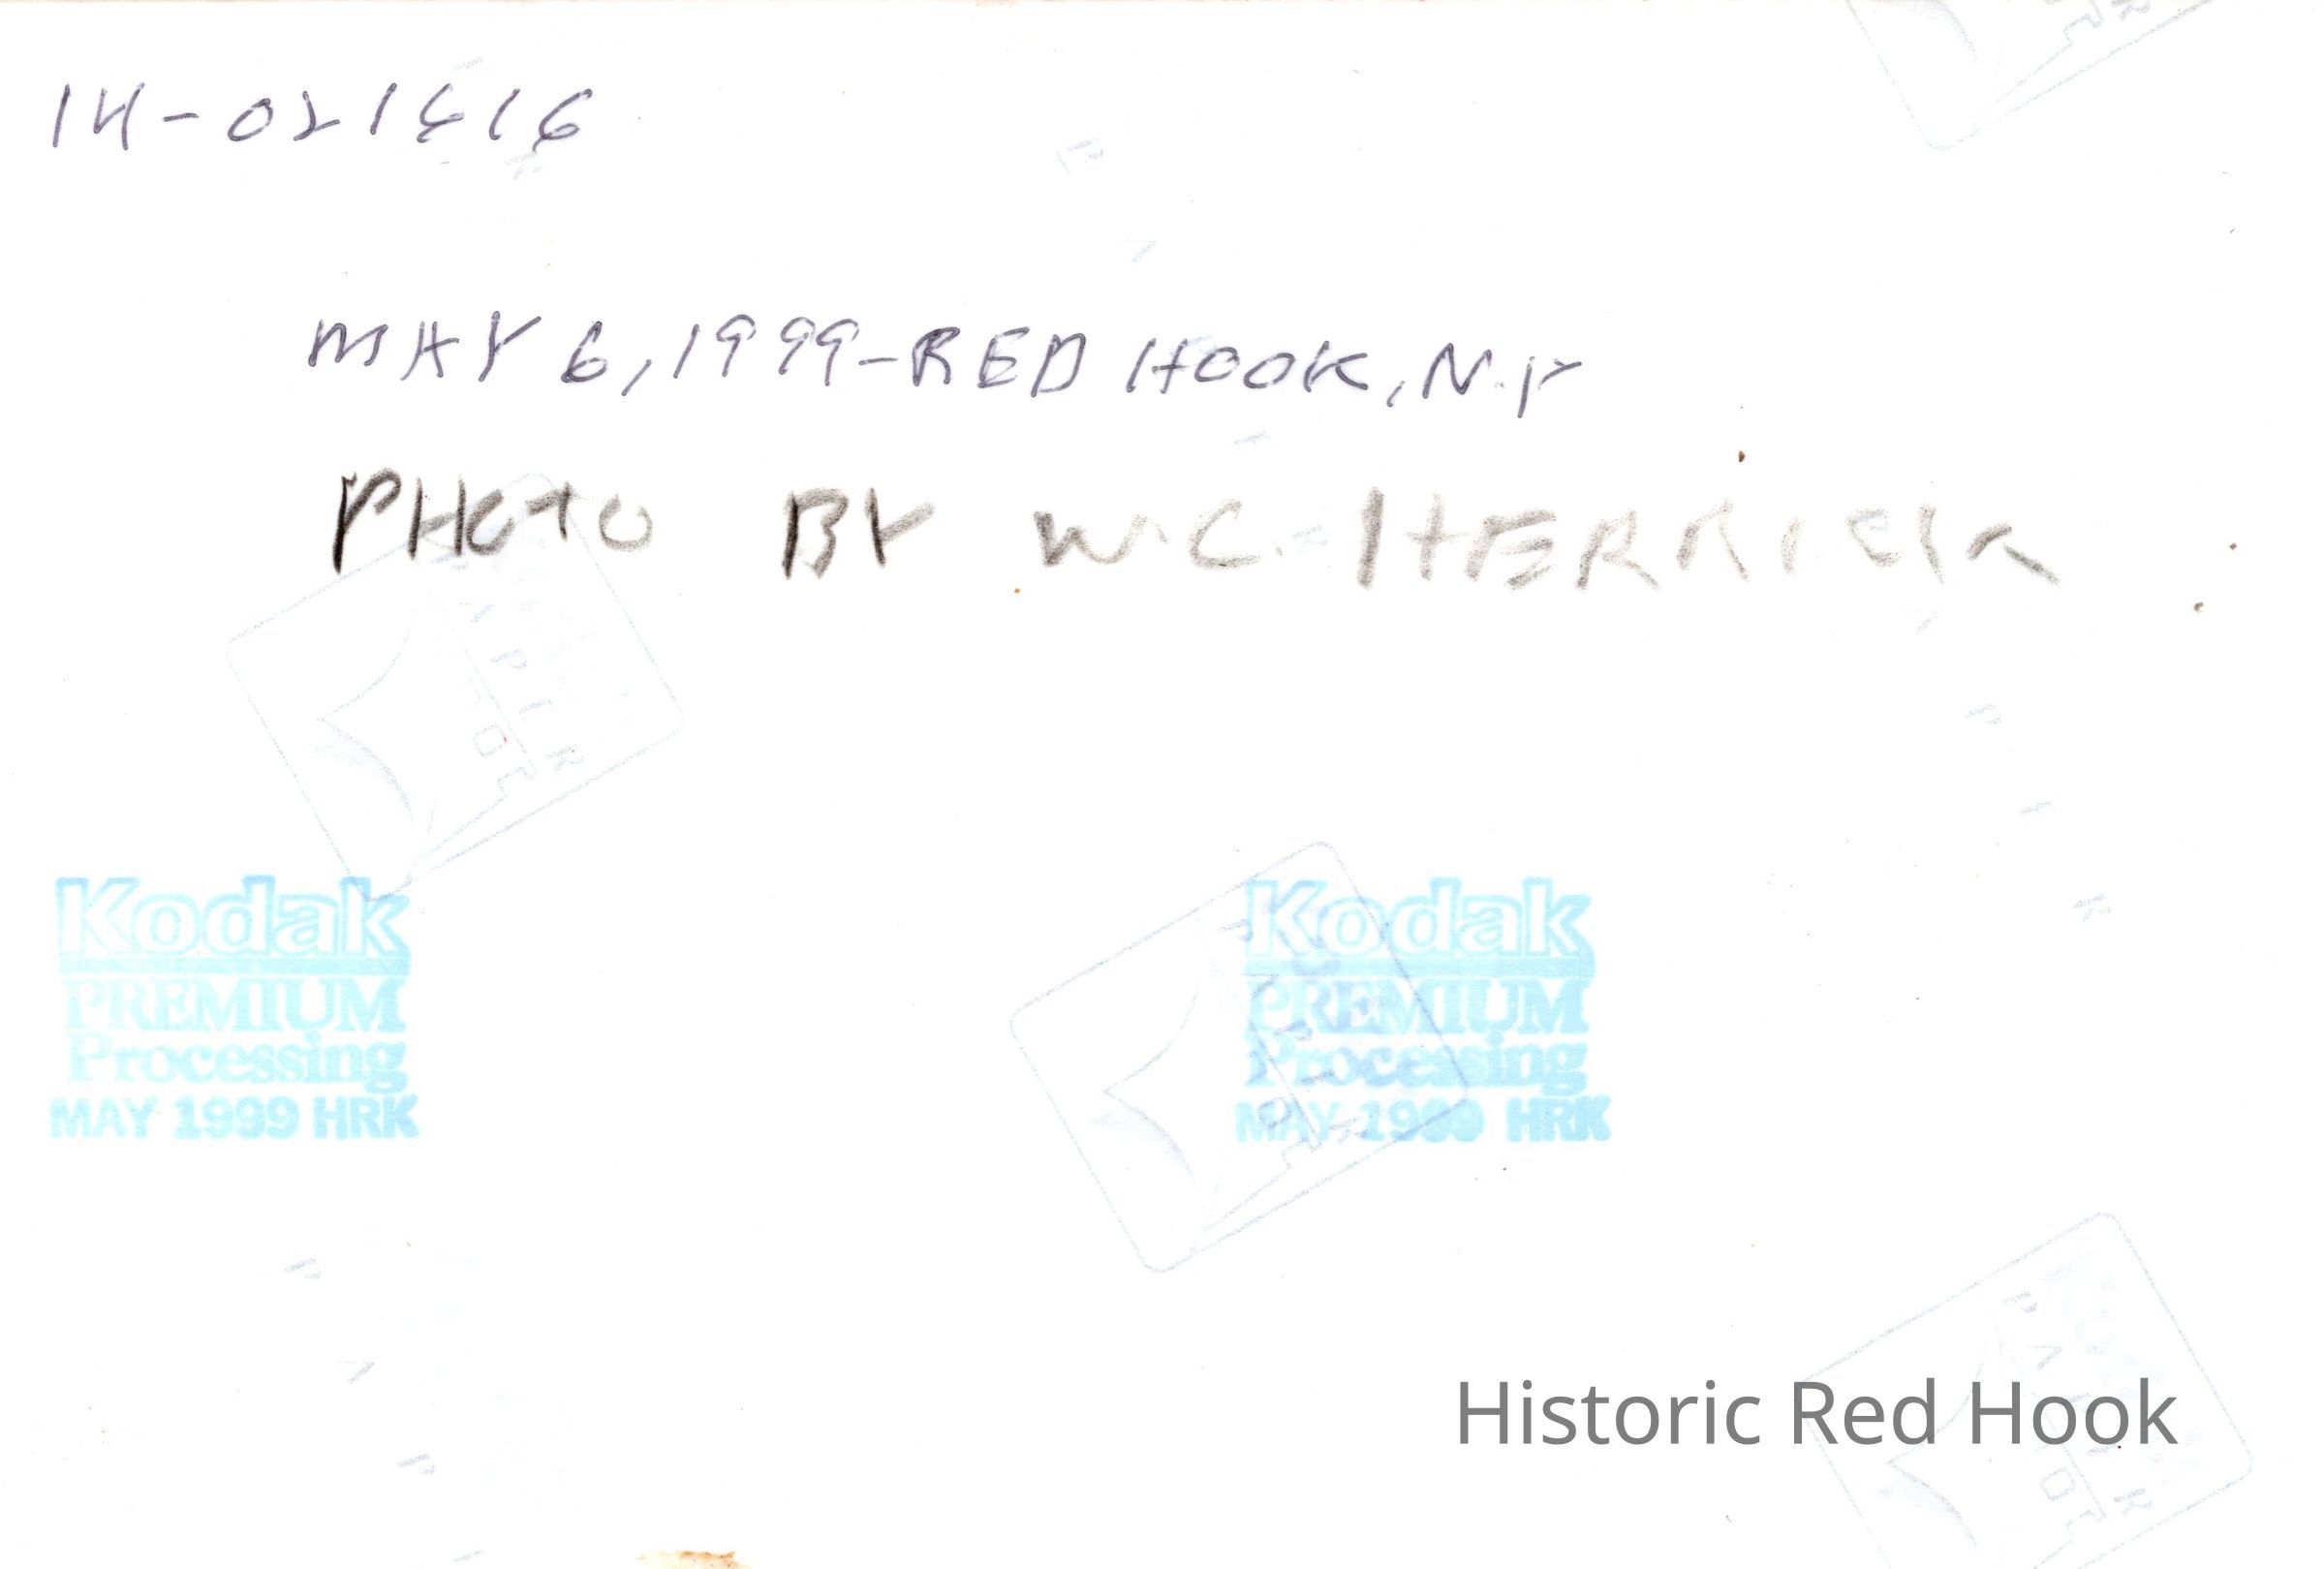 MAY 6, 1999-RED HOOK, N.Y
PHOTO BY W.C. HERRICK
Kodak
PREMIUM
Processing
MAY 1999 HRK
Kodak
PREMIUM
Processing
MAY 1999 HRK
Historic Red Hook